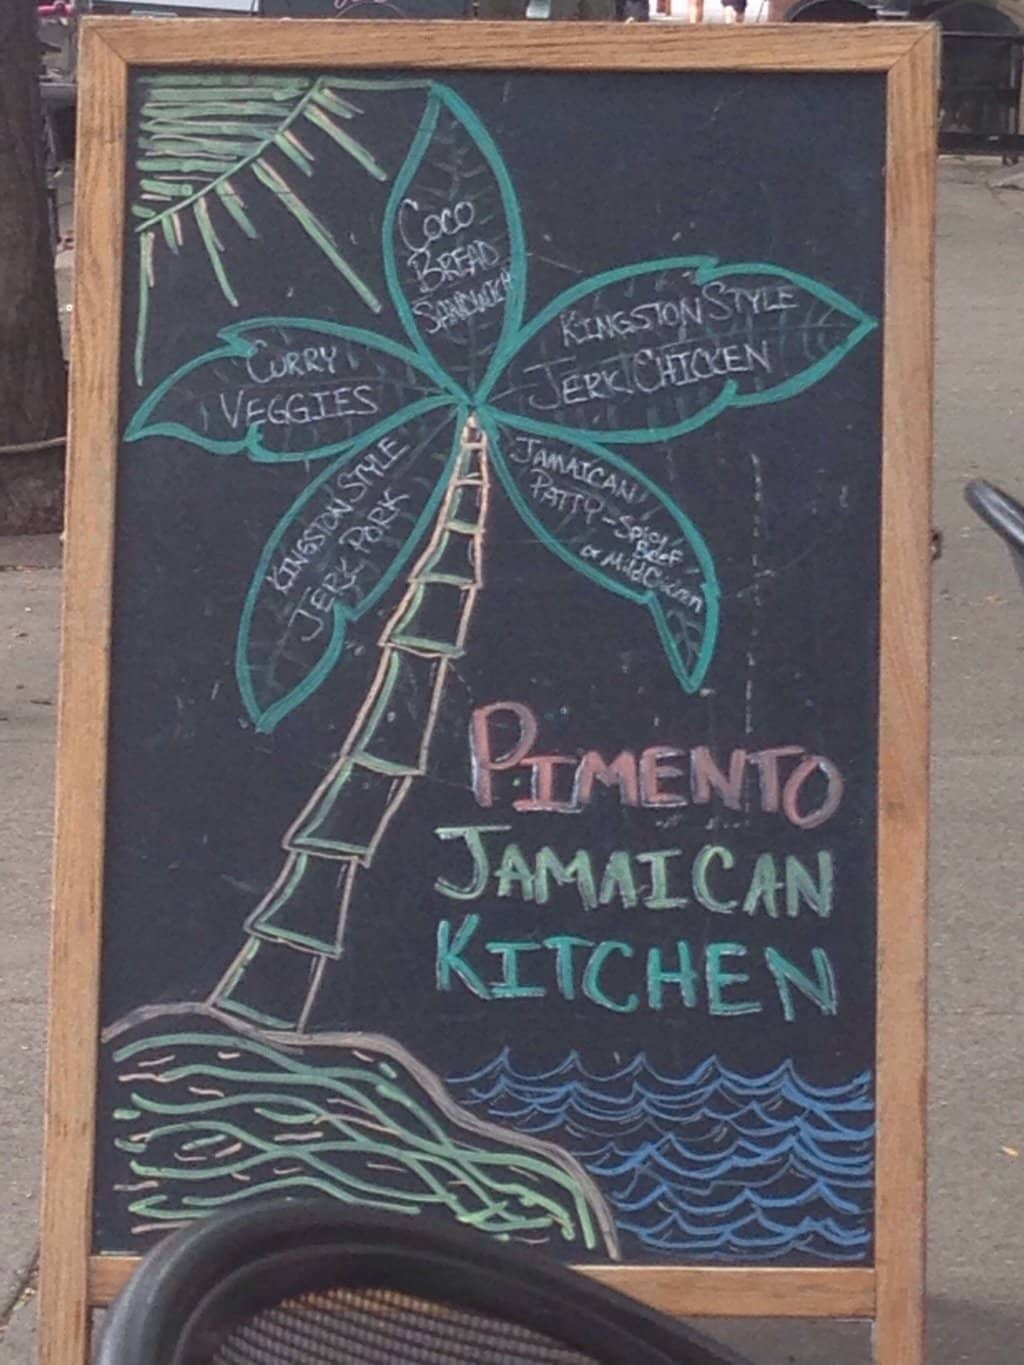 COCO
BREAD
SANDWICH
KINGSTON STYLE
JERK CHICKEN
CURRY
VEGGIES
KINGSTON STYLE
JERK PORK
JAMAICAN
PATTY - Spicy
Beef
or Mild Chicken
PIMENTO
JAMAICAN
KITCHEN